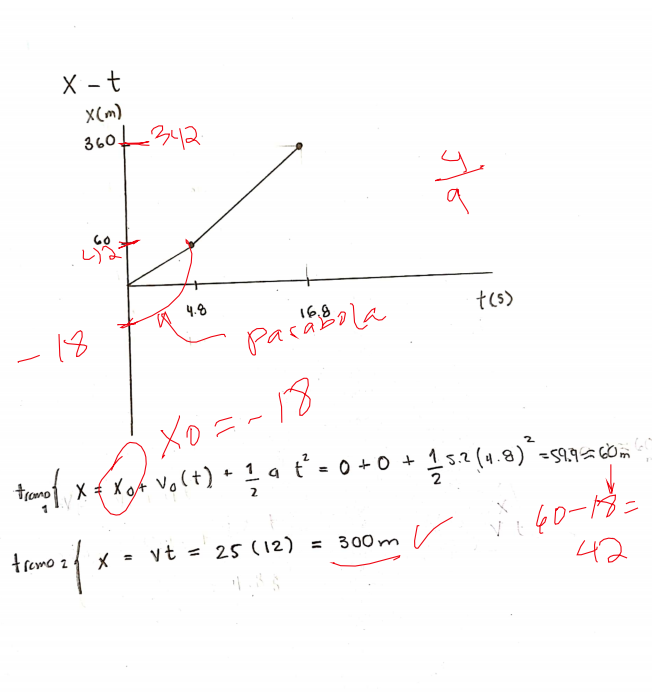 X - t
X(m)
360 342
4/9
60
42
4.8
16.8
t(s)
parabola
- 18
X0 = - 18
tramo 1 { X = X₀ + V₀(t) + 1/2 a t² = 0 + 0 + 1/2 5.2 (4.8)² = 59.9 ≈ 60m
60 - 18 =
42
tramo 2 { X = Vt = 25 (12) = 300m ✓